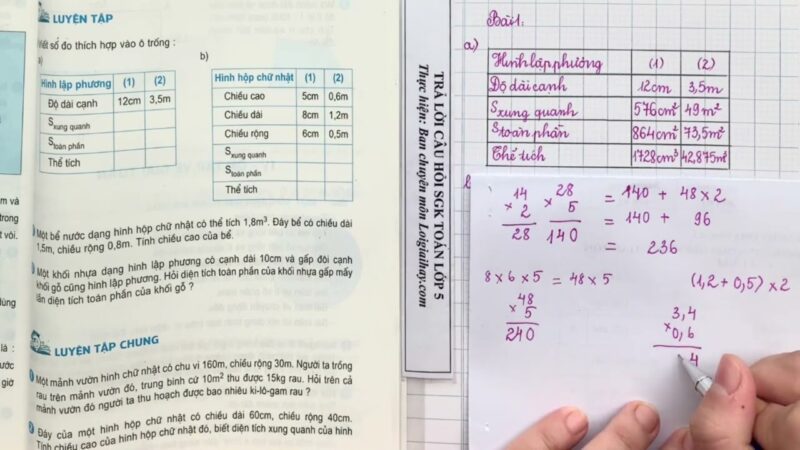 LUYỆN TẬP
Viết số đo thích hợp vào ô trống :
a)
Hình lập phương (1) (2)
Độ dài cạnh 12cm 3,5m
Sxung quanh
Stoàn phần
Thể tích
b)
Hình hộp chữ nhật (1) (2)
Chiều cao 5cm 0,6m
Chiều dài 8cm 1,2m
Chiều rộng 6cm 0,5m
Sxung quanh
Stoàn phần
Thể tích
Một bể nước dạng hình hộp chữ nhật có thể tích 1,8m³. Đáy bể có chiều dài
1,5m, chiều rộng 0,8m. Tính chiều cao của bể.
Một khối nhựa dạng hình lập phương có cạnh dài 10cm và gấp đôi cạnh
khối gỗ cũng hình lập phương. Hỏi diện tích toàn phần của khối nhựa gấp mấy
lần diện tích toàn phần của khối gỗ ?
LUYỆN TẬP CHUNG
Một mảnh vườn hình chữ nhật có chu vi 160m, chiều rộng 30m. Người ta trồng
rau trên mảnh vườn đó, trung bình cứ 10m² thu được 15kg rau. Hỏi trên cả
mảnh vườn đó người ta thu hoạch được bao nhiêu ki-lô-gam rau ?
Đáy của một hình hộp chữ nhật có chiều dài 60cm, chiều rộng 40cm.
Tính chiều cao của hình hộp chữ nhật đó, biết diện tích xung quanh của hình
TRẢ LỜI CÂU HỎI SGK TOÁN LỚP 5
Thực hiện: Ban chuyên môn Loigiaihay.com
Bài 1.
a)
Hình lập phương (1) (2)
Độ dài cạnh 12cm 3,5m
Sxung quanh 576cm² 49m²
Stoàn phần 864cm² 73,5m²
Thể tích 1728cm³ 42,875m³
14 × 2 28
28 × 5 140
= 140 + 48 × 2
= 140 + 96
= 236
8 × 6 × 5 = 48 × 5
48 × 5 240
(1,2 + 0,5) × 2
3,4 × 0,6
4